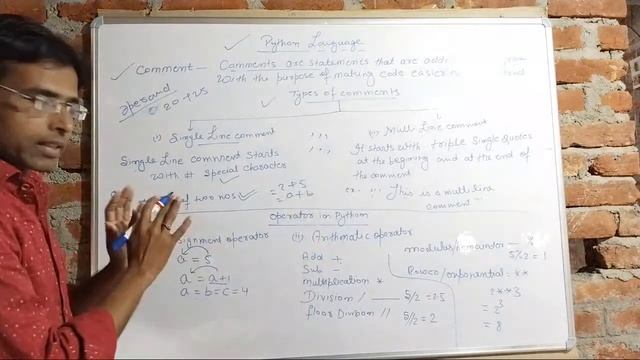 Python Language
Comment — Comments are statements that are
with the purpose of making code easier
operand
20+25
Types of comments
(i) Single Line comment
Single Line comment starts
with # special character
of two nos
= 2+5
= a+b
(ii) Multi Line comment
It starts with triple single quotes
at the beginning and at the end of
the comment
ex - ''' This is a multiline
comment '''
Operator in Python
operator
a = 5
a = a+1
a = b = c = 4
(ii) Arithmetic operator
Add +
Sub -
multiplication *
Division / — 5/2 = 2.5
floor Division // 5//2 = 2
modulus/remainder — %
5%2 = 1
Power/exponential = **
2**3
= 2³
= 8